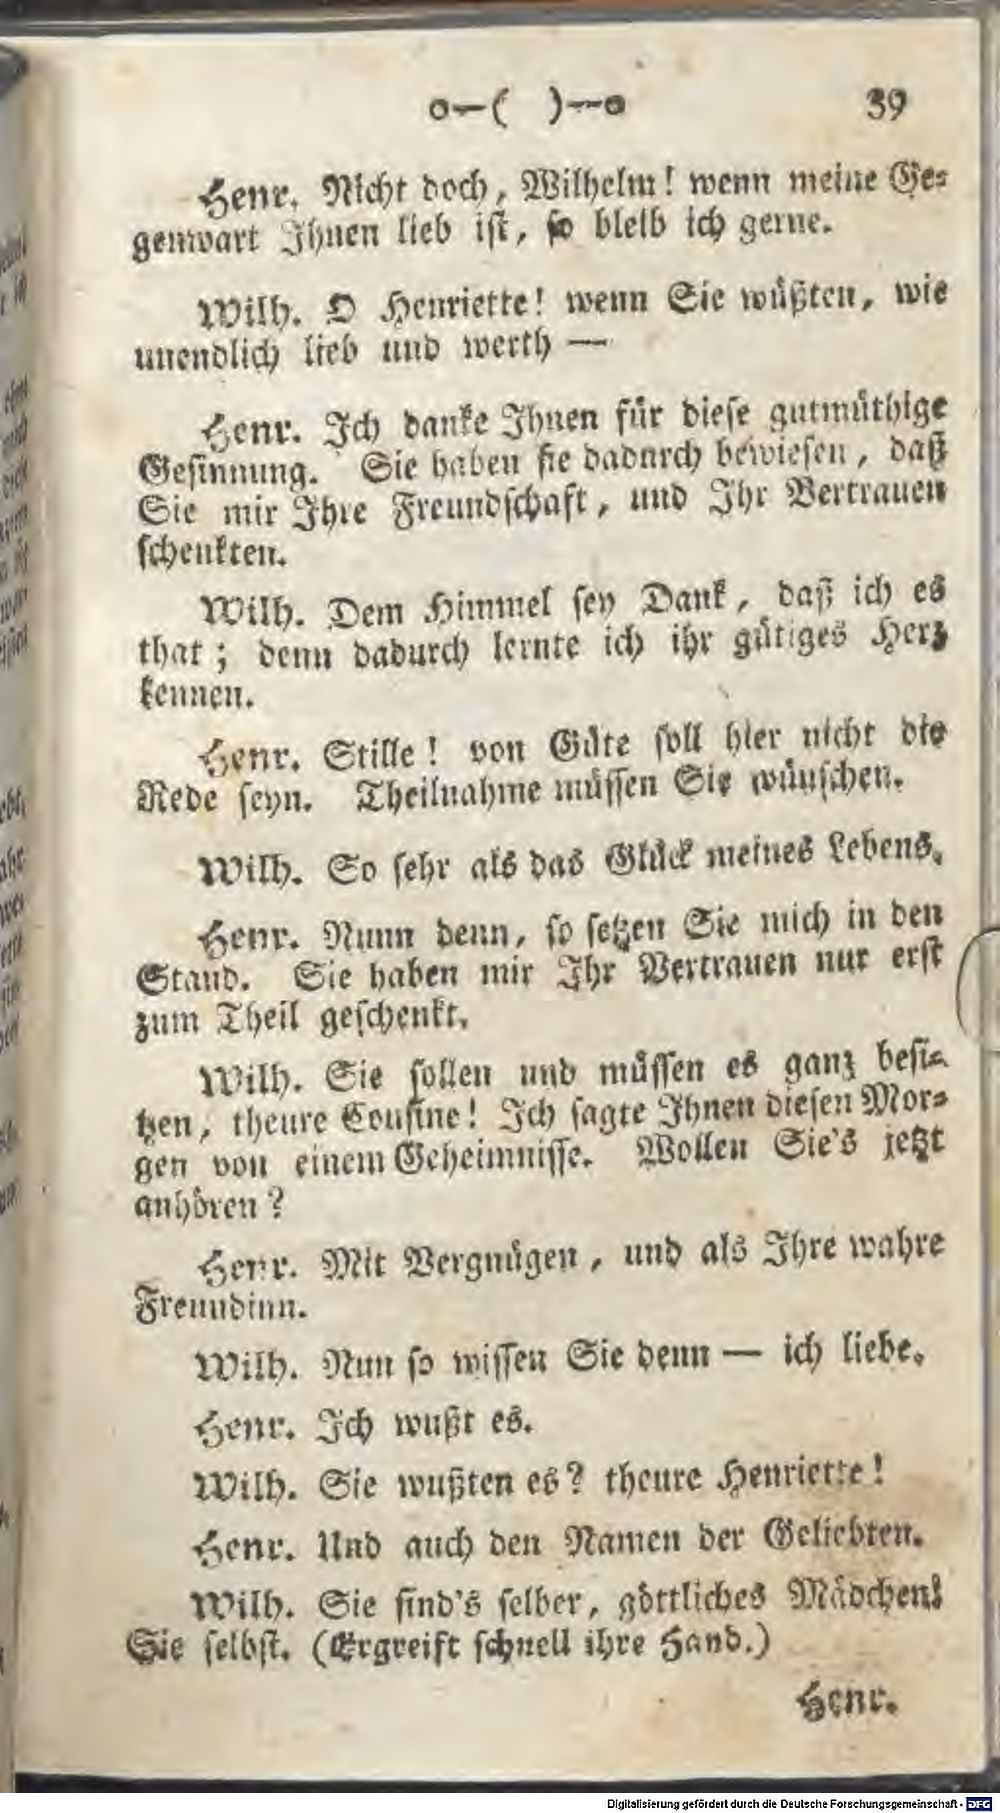 o—( )—o 39
Henr. Nicht doch, Wilhelm! wenn meine Ge-
genwart Ihnen lieb ist, so bleib ich gerne.
Wilh. O Henriette! wenn Sie wüßten, wie
unendlich lieb und werth —
Henr. Ich danke Ihnen für diese gutmüthige
Gesinnung. Sie haben sie dadurch bewiesen, daß
Sie mir Ihre Freundschaft, und Ihr Vertrauen
schenkten.
Wilh. Dem Himmel sey Dank, daß ich es
that; denn dadurch lernte ich ihr gütiges Herz
kennen.
Henr. Stille! von Güte soll hier nicht die
Rede seyn. Theilnahme müssen Sie wünschen.
Wilh. So sehr als das Glück meines Lebens.
Henr. Nunn denn, so setzen Sie mich in den
Stand. Sie haben mir Ihr Vertrauen nur erst
zum Theil geschenkt.
Wilh. Sie sollen und müssen es ganz besi-
tzen, theure Cousine! Ich sagte Ihnen diesen Mor-
gen von einem Geheimnisse. Wollen Sie's jetzt
anhören?
Henr. Mit Vergnügen, und als Ihre wahre
Freundinn.
Wilh. Nun so wissen Sie denn — ich liebe.
Henr. Ich wußt es.
Wilh. Sie wußten es? theure Henriette!
Henr. Und auch den Namen der Geliebten.
Wilh. Sie sind's selber, göttliches Mädchen!
Sie selbst. (Ergreift schnell ihre Hand.)
Henr.
Digitalisierung gefördert durch die Deutsche Forschungsgemeinschaft - DFG